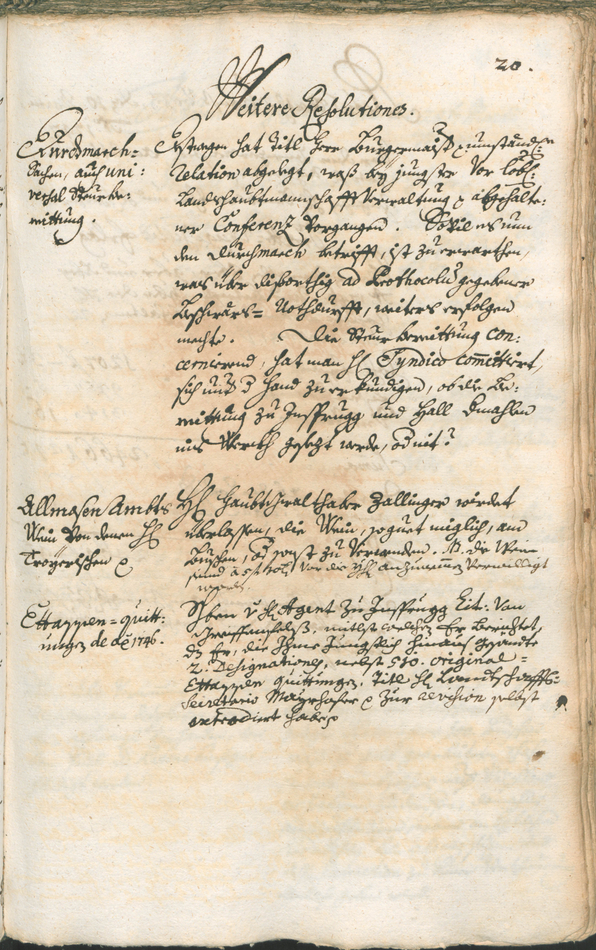 20.
Weitere Resolutiones.
Durchmarch=
Sachen, auch uni:
versal Steur be:
reittung.
Gestragen hat Titl Herr Burgermaister umständ:
relation abgelegt, waß bey jüngster Vor Löbl:
Landtshaubtmannschafft Verwaltung abgehalte:
ner Conferenz Vorgangen. Sovil es nun
den durchmarch betrifft, ist zu erwarthen,
was über disorthig ad Prothocollum gegebene
Beschwärs= Nothdurfft, weiters erfolgen
mechte. Die Steur bereittung con:
cernierend, hat man H: Syndico Committiert,
sich und Hand zu erkundigen, ob die Be:
reittung zu Insprugg und Hall dermahlen
ins Werckh gesezt werde, od nit?
Allmosen Ambts
Wein von denen H:
Troyerischen
H: Haubtschralthaber Zallinger würdet
überlassen, die Wein, so guet möglich, an
Buschen, od sonst zu Verwenden. NB. die Wein
seind
Ettappen=quitt:
ungen de ao 1746.
Schreiben v H: Agent zu Insprugg Tit: Van
mitlst welcher Er berichtet,
dz Er, die Ihme Jüngstlich hinauß gesandte
2. Designationes, nebst 510. original=
Ettappen quittungen, Titl H: Landtschaffts=
Secretario Mayrhofer zur revision selbst
extradiert habe